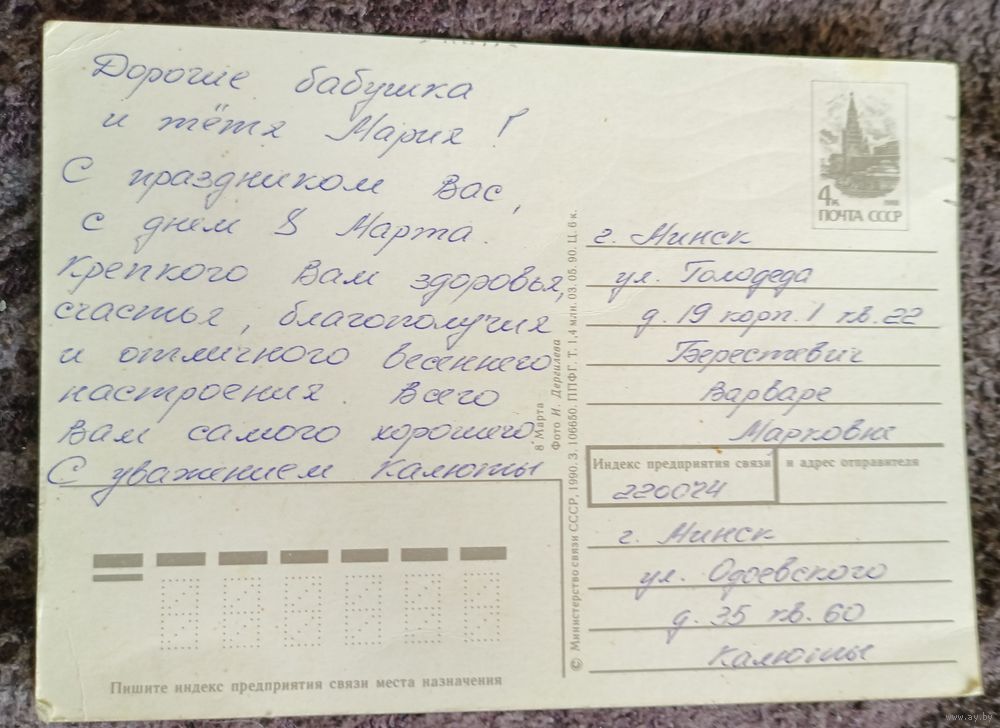 Дорогие бабушка
и тётя Мария!
С праздником Вас,
с днем 8 Марта.
Крепкого Вам здоровья,
счастья, благополучия
и отличного весеннего
настроения. Всего
Вам самого хорошего.
С уважением Калюты
4к 1988
ПОЧТА СССР
г. Минск
ул. Голодеда
д. 19 корп. 1 кв. 22
Берестевич
Варваре
Марковне
Индекс предприятия связи и адрес отправителя
220024
г. Минск
ул. Одоевского
д. 35 кв. 60
Калюты
8 Марта
Фото И. Дергилева
© Министерство связи СССР, 1990. З. 106650. ППФГ. Т. 1,4 млн. 03.05.90. Ц. 6 к.
Пишите индекс предприятия связи места назначения
www.ay.by